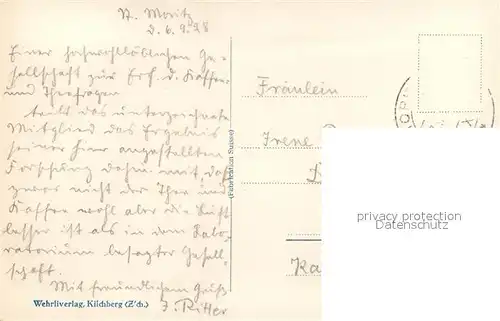 St. Moritz
d. 6.9.28
Einer hochwohllöblichen Ge-
sellschaft zur Erf. d. Kaffee-
und Theefragen
teilt das unterzeichnete
Mitglied das Ergebnis
seiner hier angestellten
Forschung dahin mit, daß
zwar nicht der Thee und
Kaffee wohl aber die Luft
besser ist als in dem Labo-
ratorium besagter Gesell-
schaft.
Mit freundlichem Gruß
J. Ritter
Wehrliverlag, Kilchberg (Z'ch.)
(Fabrication Suisse)
Fräulein
Irene
Ka
privacy protection
Datenschutz